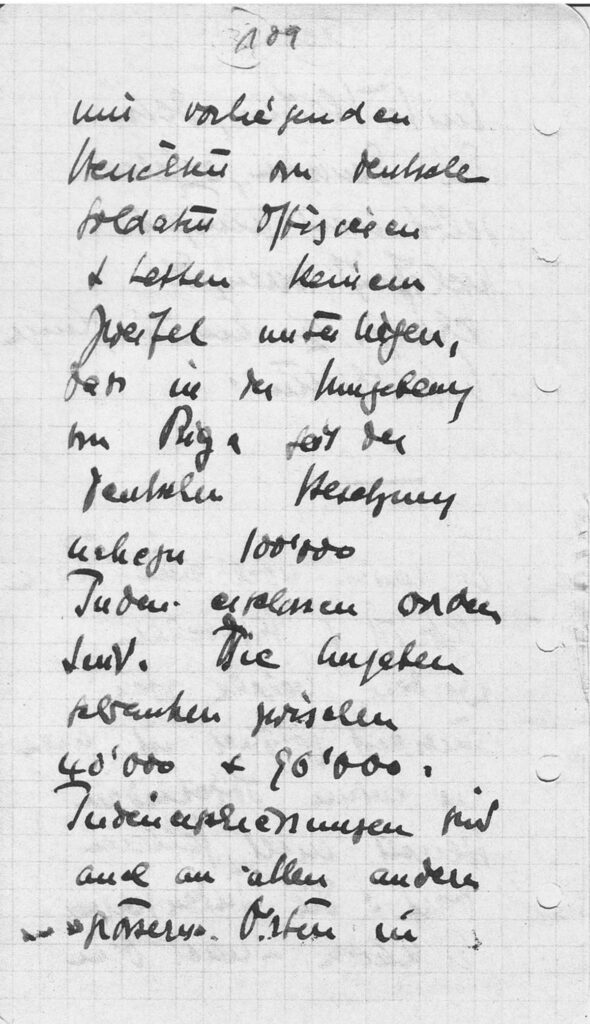 109
mir vorliegenden
Berichten von deutschen
Soldaten Offizieren
& Letten keinem
Zweifel unterliegen,
dass in der Umgebung
von Riga seit der
deutschen Besetzung
nahezu 100'000
Juden erschossen worden
sind. Die Angaben
schwanken zwischen
40'000 & 96'000.
Judenerschiessungen sind
auch an allen andern
grössern Orten in